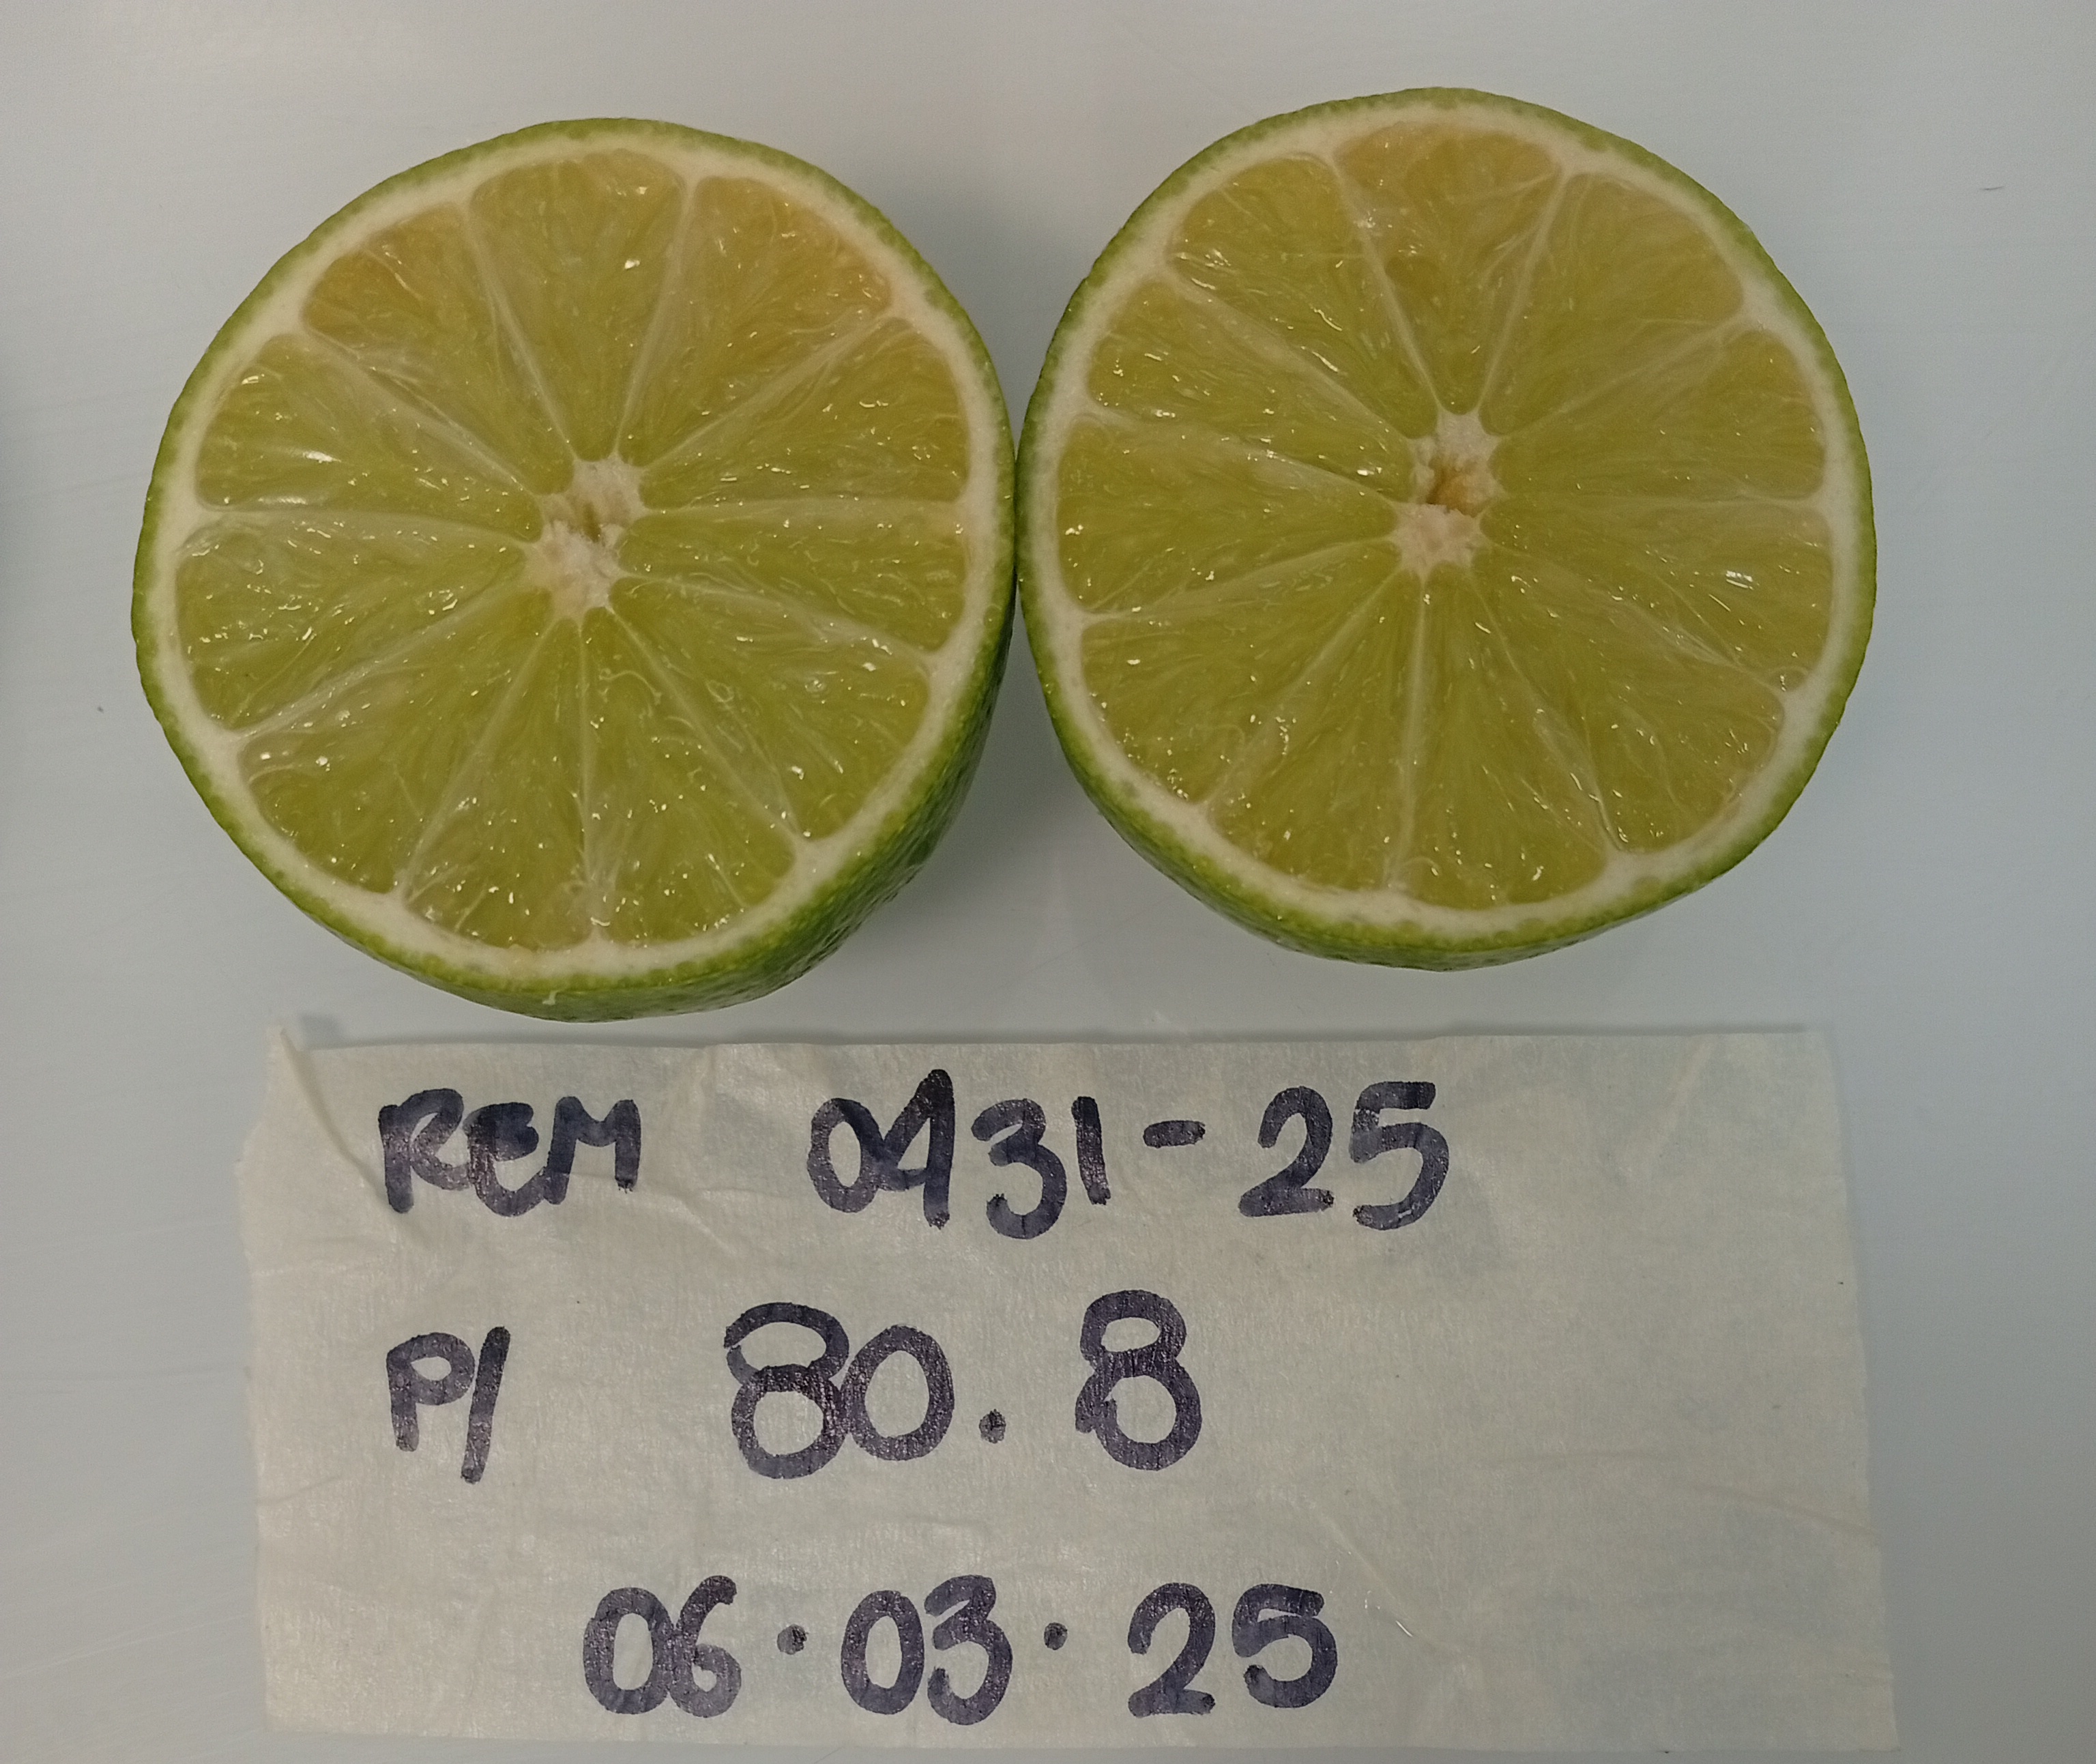 REM 0431-25
P/ 80.8
06.03.25